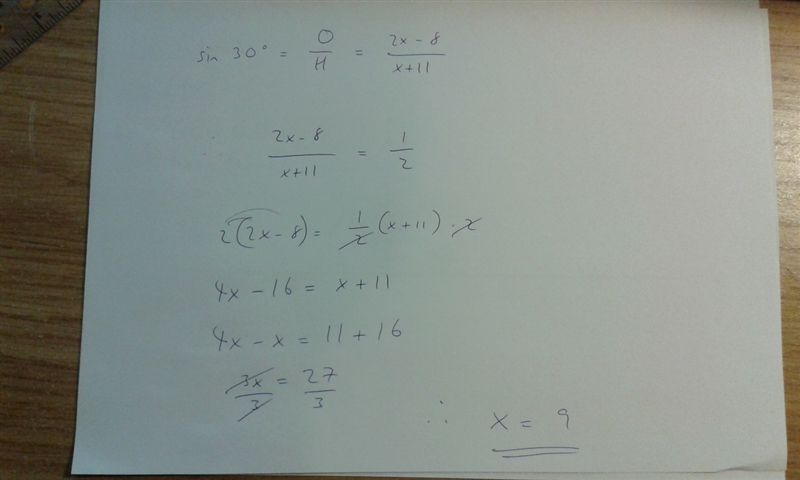 sin 30° = O/H = (2x - 8)/(x+11)
(2x - 8)/(x+11) = 1/2
2(2x - 8) = 1/2 (x+11) · 2
4x - 16 = x + 11
4x - x = 11 + 16
3x/3 = 27/3
∴ x = 9